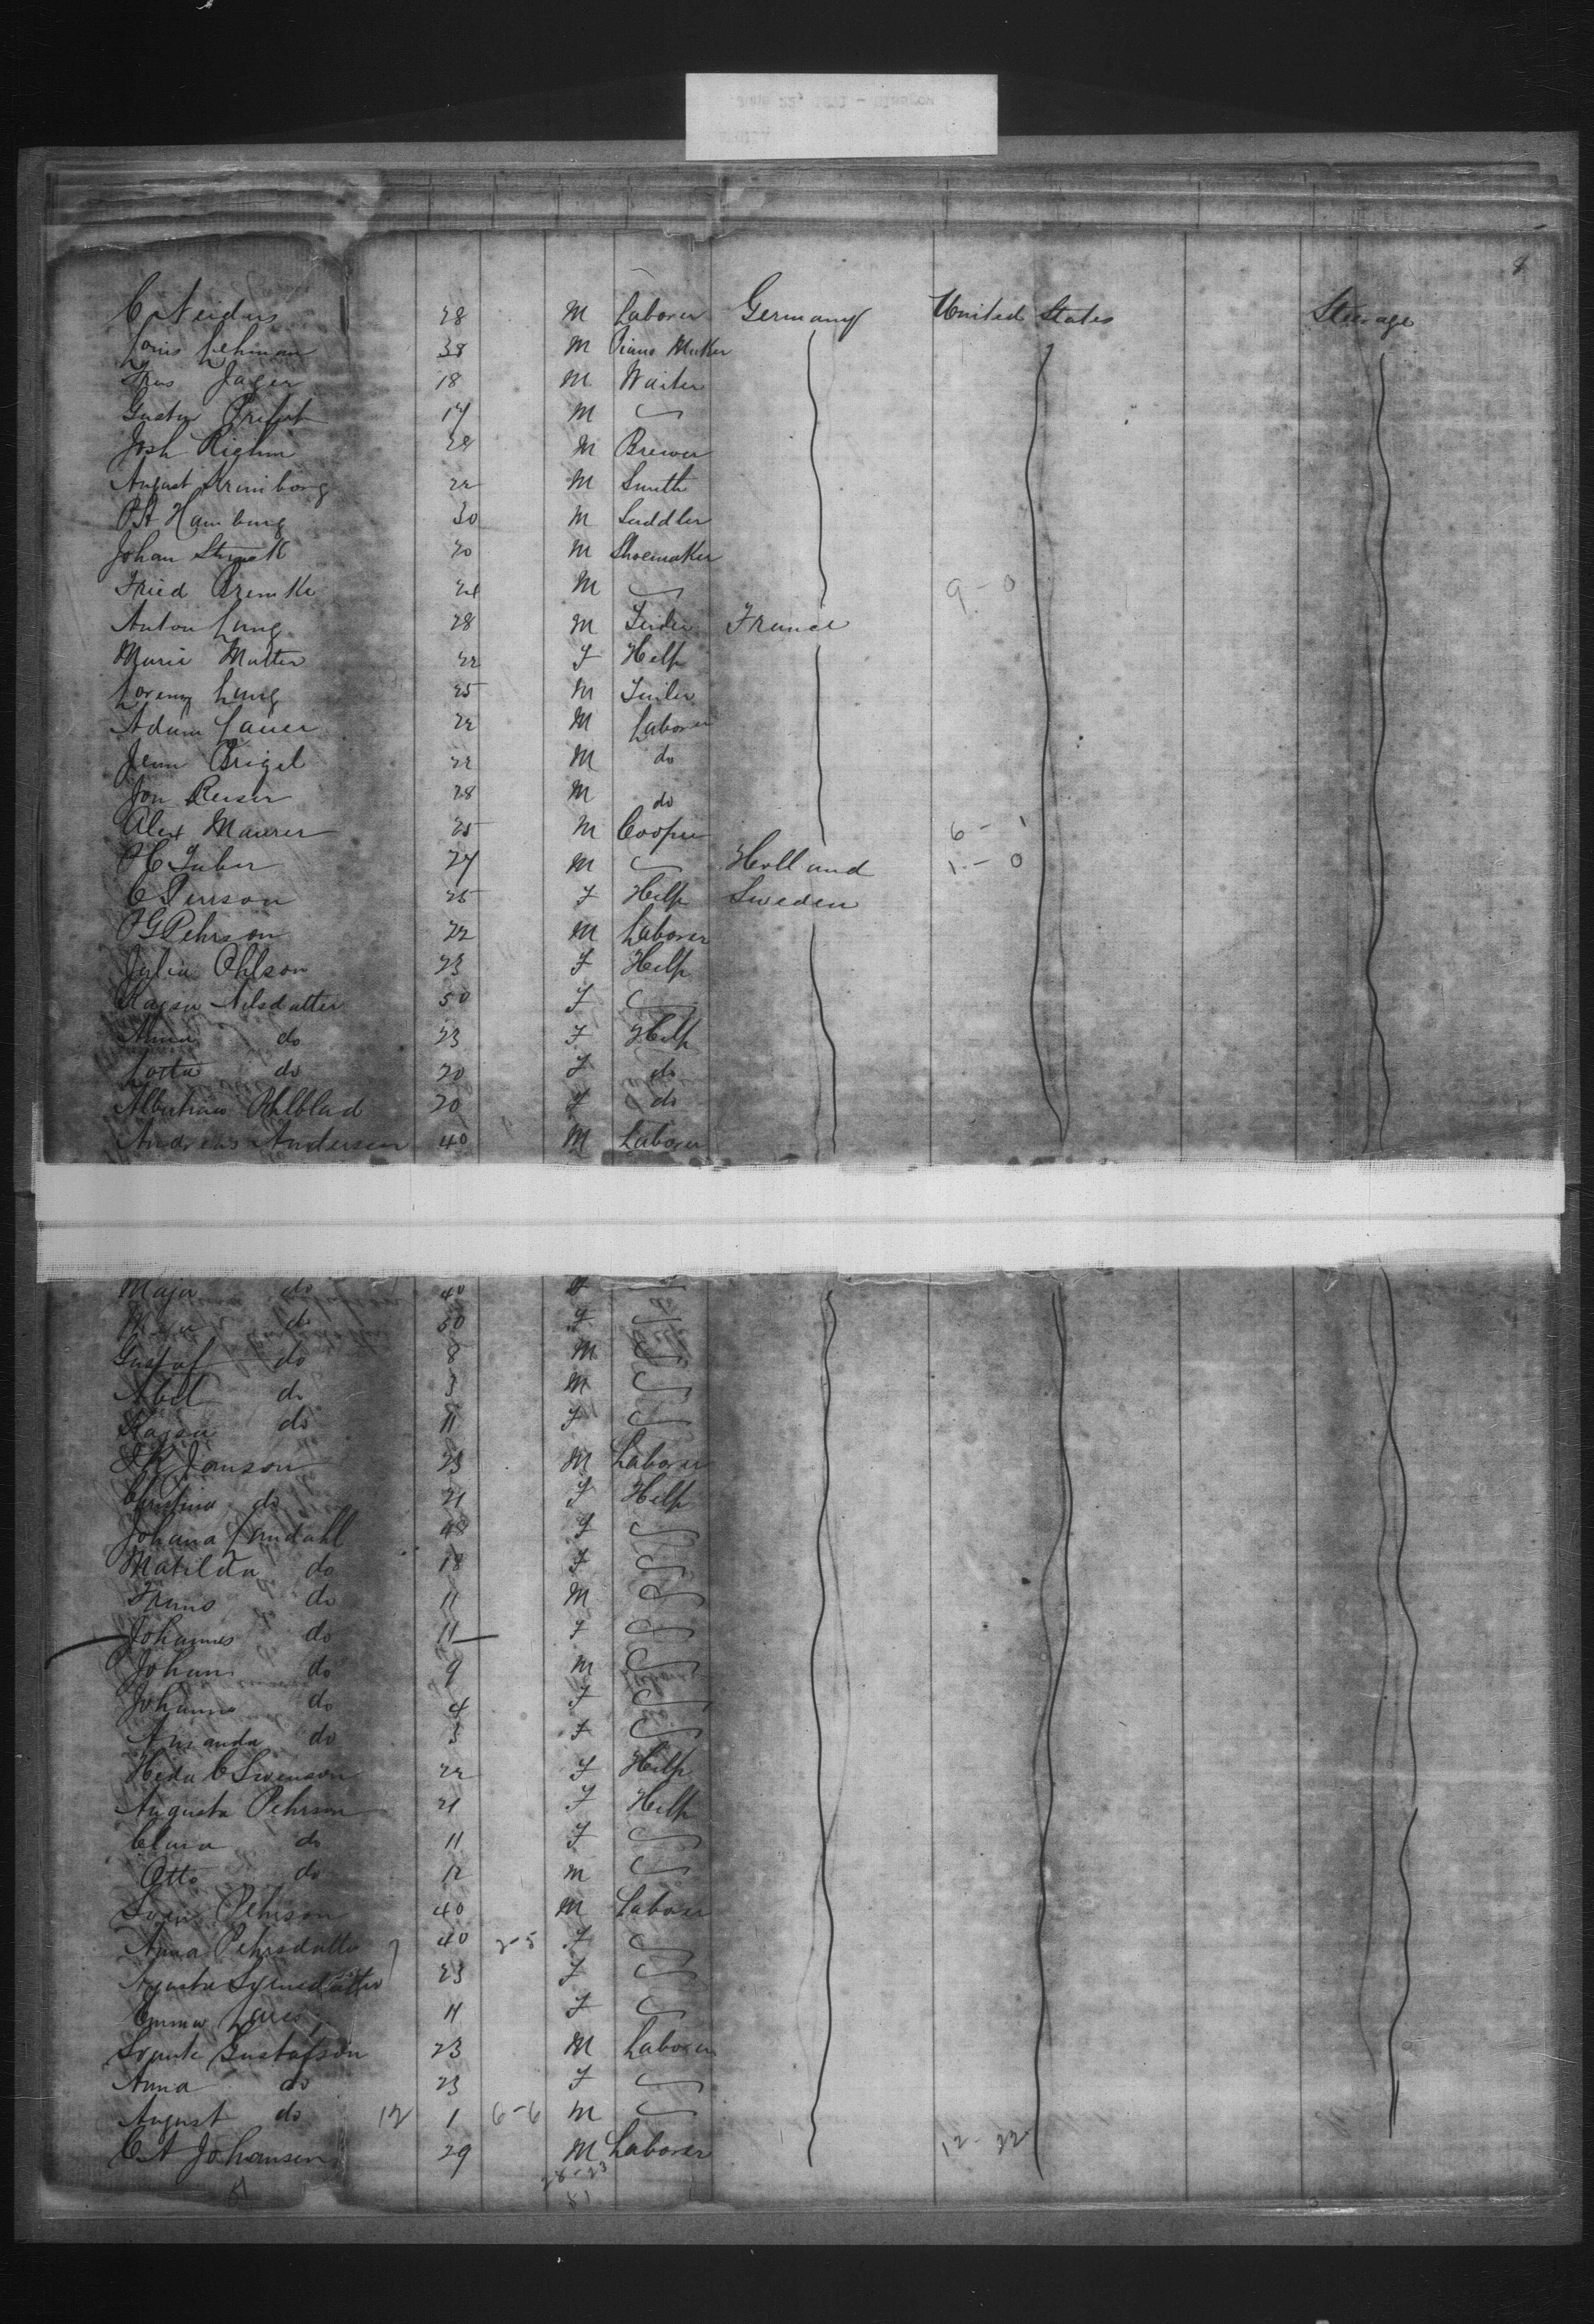 8
C Neidus 28 M Laborer Germany United States Steerage
Louis Lehman 38 M Piano Maker
Jager 18 M Waiter
Gustav 17 M
Josh Riehm 28 M Brewer
August 22 M Smith
Hamburg 30 M Saddler
Johan 20 M Shoemaker
Fried 24 M 9 - 0
Anton Lang 28 M France
Marie Matter 22 F Help
Lorenz Lang 25 M
Adam Lauer 22 M Laborer
22 M do
Jon Reiser 28 M do
Alex Maurer 25 M Cooper 6 - 1
27 M Holland 1 - 0
C Person 25 F Help Sweden
P G Pehrson 22 M Laborer
Julia Ohlson 23 F Help
Kajsa Nilsdatter 50 F
Anna do 23 F Help
Lotta do 20 F do
Ahlblad 20 F do
Andreas Andersen 40 M Laborer
Maja do 40 F
do 50 F
Gustaf do 8 M
Abel do 3 M
Kajsa do 11 F
Janson 23 M Laborer
Christina do 21 F Help
Johana Landahl 48 F
Matilda do 18 F
Frans do 11 M
Johannes do 11 F
Johan do 9 M
Johanna do 4 F
Amanda do 3 F
Heda C Swenson 22 F Help
Augusta Pehrson 21 F Help
Clara do 11 F
Otto do 12 M
Sven Pehrson 40 M Laborer
Anna Pehrsdatter 40 F
23 F
Emma 11 F
Svante Gustafson 23 M Laborer
Anna do 23 F
August do 12 1 6-6 M
C A Johansen 29 M Laborer 12 - 22
28-23
81